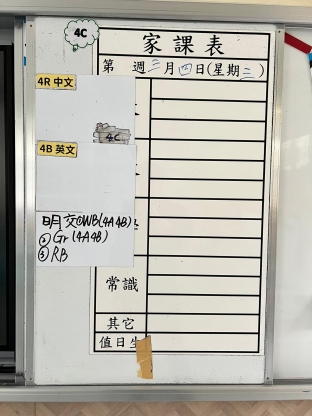 4C
家課表
第 週三月四日(星期三)
4R 中文
4C
4B 英文
明交①WB(4A4B)
②Gr(4A4B)
③RB
常識
其它
值日生